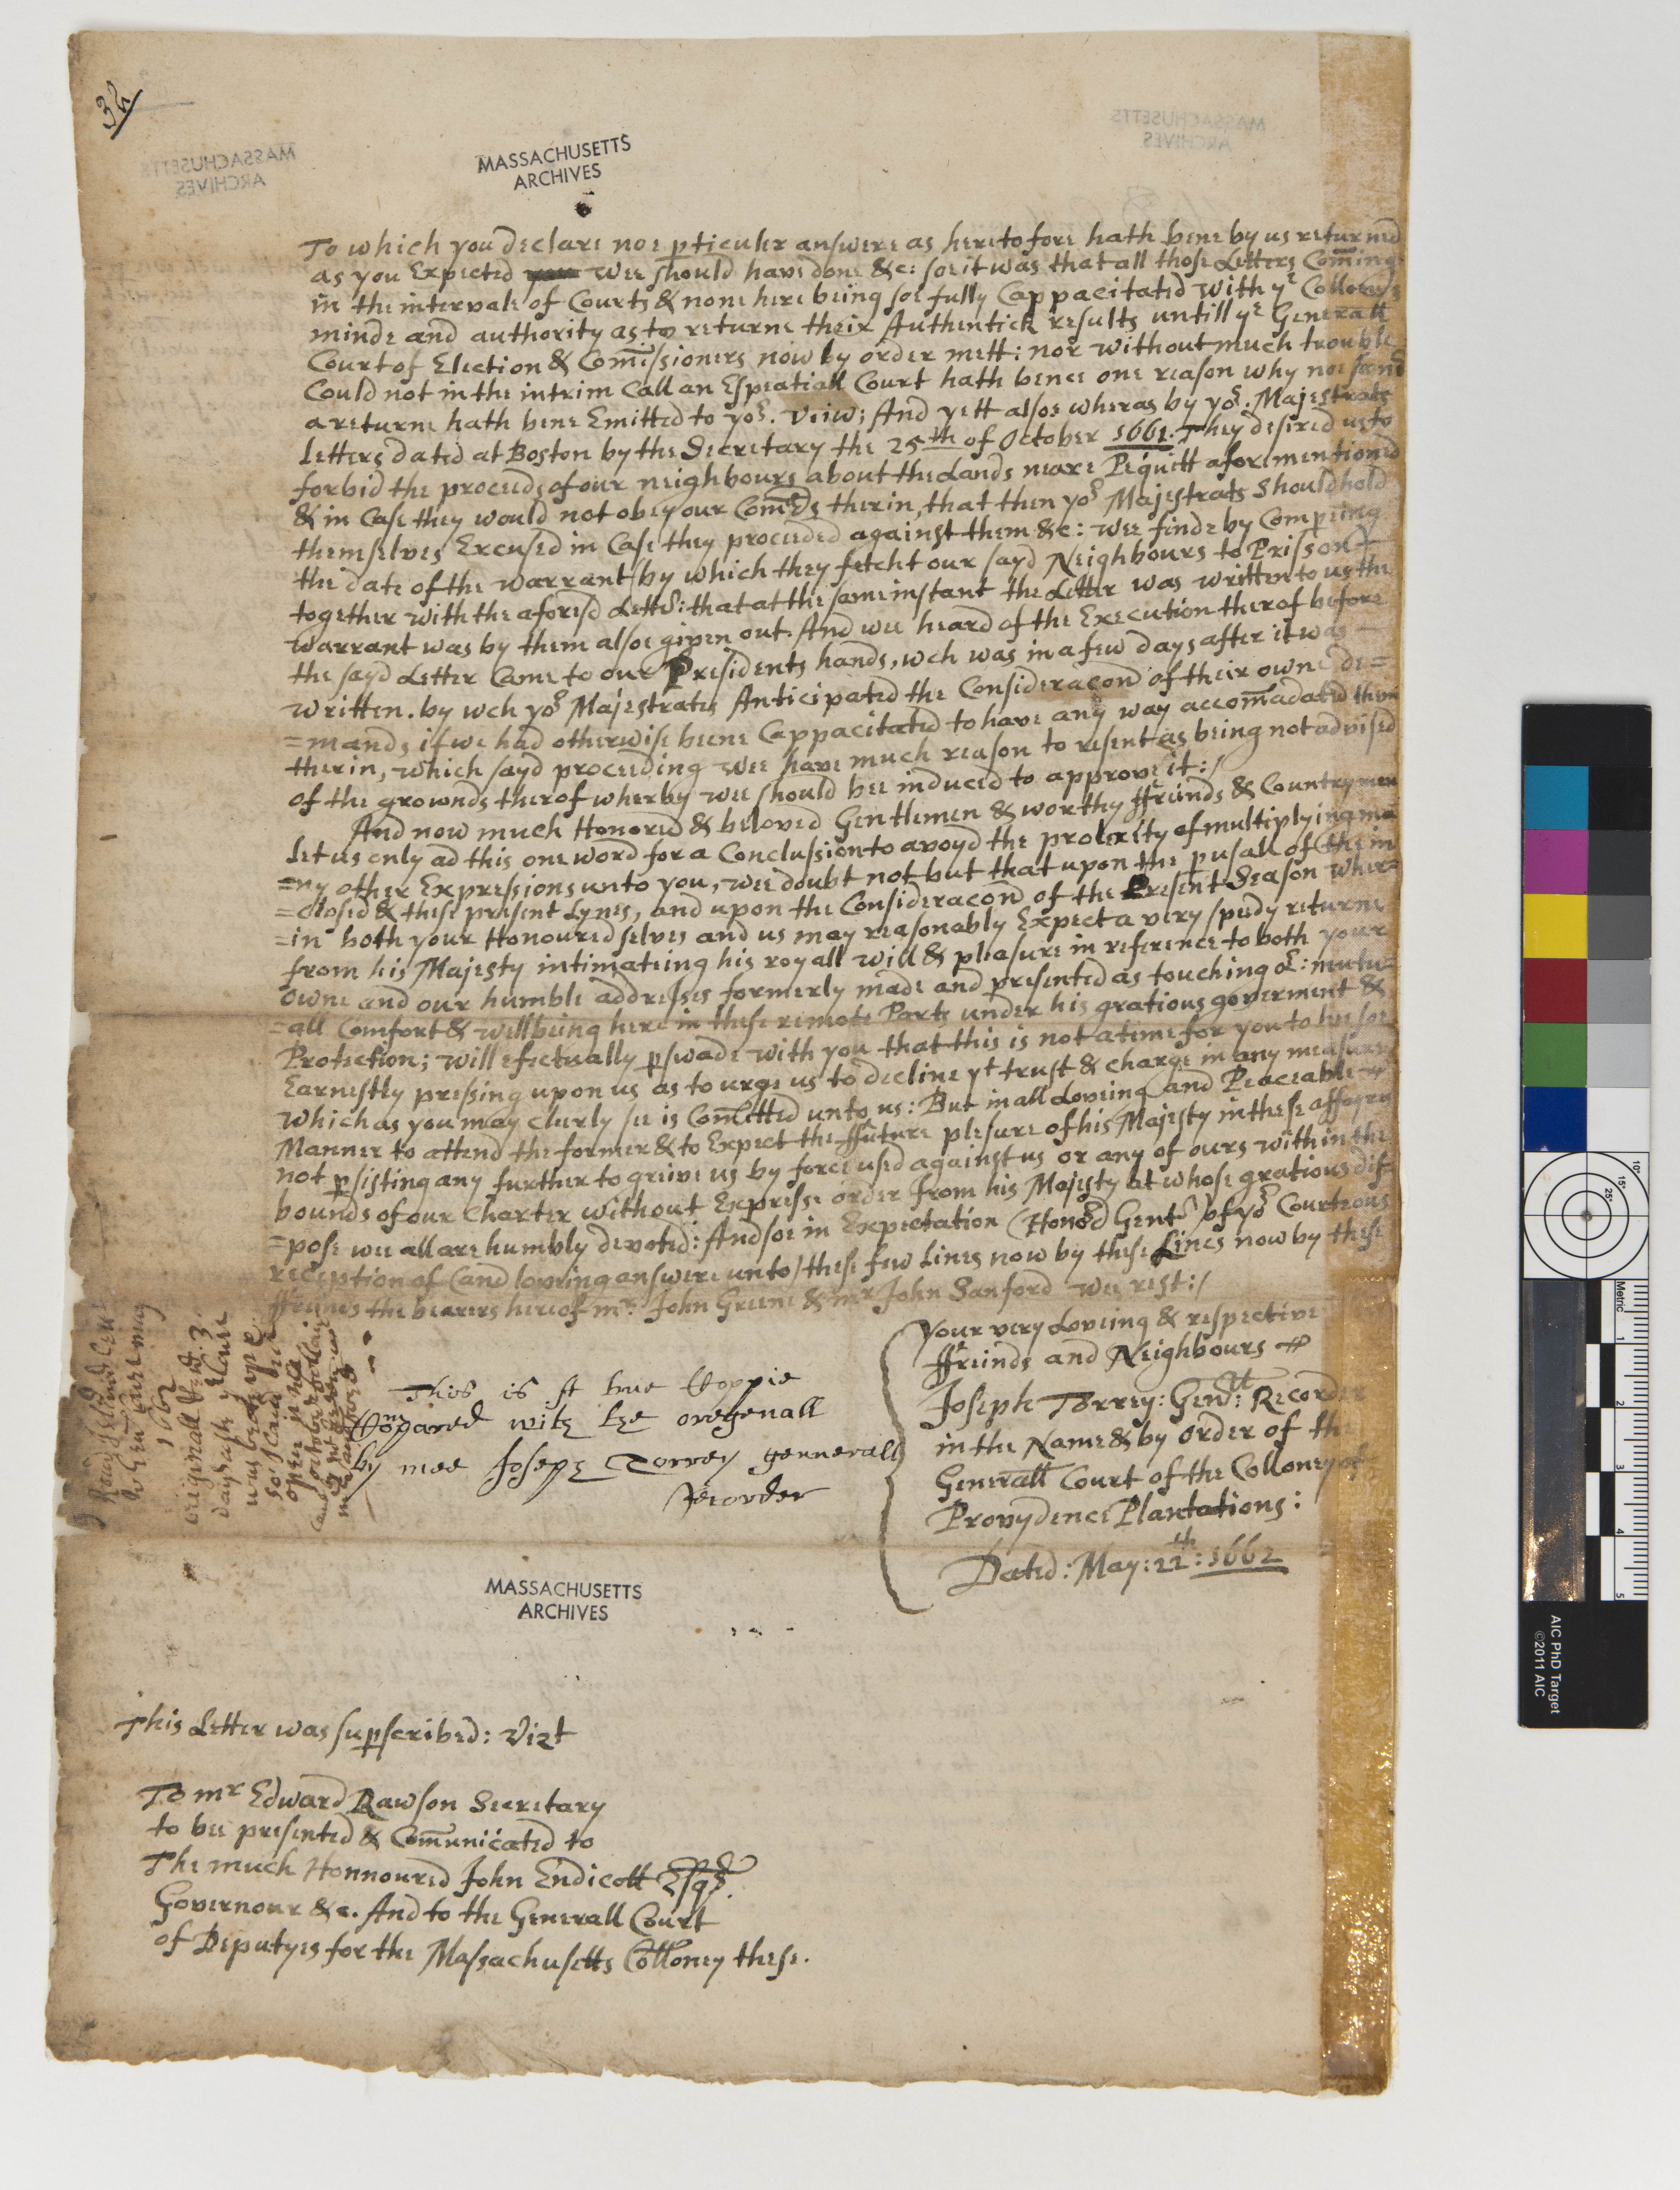 32
MASSACHUSETTS
ARCHIVES
To which you declare noe pticuler answere as heretofore hath bene by us returned
as you Expected wee should have done &c: soe it was that all those Letters Coming
in the intervale of Courts & none here being soe fully Cappacitated with yᵉ Collonys
minde and authority as to returne their Authentick results untill yᵉ Generall
Court of Election & Comissioners now by order mett: nor without much trouble
Could not in the intrim Call an Espeatiall Court hath benee one reason why noe
a returne hath bene Emitted to yoʳ. veiw; And yett alsoe wheras by yoʳ. Majestrats
Letters dated at Boston by the Secretary the 25ᵗʰ of October 1661. They desired us to
forbid the proceeds of our neighbours about the Lands neare Pequitt aforementioned
& in Case they would not obey our Comᵈs therin, that then yoʳ Majestrats Should hold
themselves Excused in Case they proceeded against them &c: wee finde by Compeing
the date of the warrant by which they fetcht our sayd Neighbours to Prisson
together with the aforesd Lettʳ: that at the same instant the Letter was written to us the
warrant was by them alsoe given out. And wee heard of the Execution therof before
the sayd Letter Came to our Presidents hands, wch was in a few days after it was
written. by wch yoʳ Majestrates Anticipated the Consideracon of their owne de=
=mands if we had otherwise beene Cappacitated to have any way accomadated them
therin, which sayd proceeding wee have much reason to resent as being not advised
of the grownds therof wherby wee should bee induced to approve it:/
And now much Honored & beloved Gentlemen & worthy ffreinds & Countrymen
Let us only ad this one word for a Conclussion to avoyd the prolexity of multiplying ma
=ny other Expressions unto you, wee doubt not but that upon the pusall of the in
=closed & these present Lynes, and upon the Consideracon of the Present Season wher=
=in both your Honoured selves and us may reasonably Expect a very speedy returne
from his Majesty intimateing his royall will & pleasure in reference to both your
owne and our humble addresses formerly made and presented as touching oʳ: mutu=
=all Comfort & wellbeing here in these remote Parts under his gratious goverment &
Protection; will efectually pswade with you that this is not a time for you to bee soe
Earnestly pressing upon us as to urge us to decline yᵗ trust & charge in any measure
which as you may clerly see is Comitted unto us: But in all Loveing and Peaceable
Manner to attend the former & to Expect the ffuture plesure of his Majesty in these affayrs
not psisting any further to greive us by force used against us or any of ours within the
bounds of our Charter without Expresse order from his Majesty at whose gratious dis=
=pose wee all are humbly devoted: And soe in Expectation (Honoᵈ Gentˢ) of yoʳ Courteous
reception of (and loveing answere unto) these few Lines now by these Lines now by these
ffreinds the bearers hereof mʳ. John Greene & mʳ John Sanford wee rest:/
Your very Loveing & respective
ffreinds and Neighbours
Joseph Torrey: Genˡˡ: Recorder
in the Name & by order of the
Generall Court of the Colloney of
Provydence Plantations:
Dated: May: 22ᵗʰ: 1662
This is A true Coppie
Compared with the oregenall
by mee Joseph Torrey gennerall
Recorder
1662
MASSACHUSETTS
ARCHIVES
This Letter was supscribed: Vizt
To mʳ Edward Rawson Secretary
to bee presented & Comunicated to
The much Honnoured John Endicott Esqʳ.
Governour &c. And to the Generall Court
of Deputyes for the Massachusetts Colloney these.
10° 15° 25°
Metric 1 2 3 4 5
AIC PhD Target
©2011 AIC